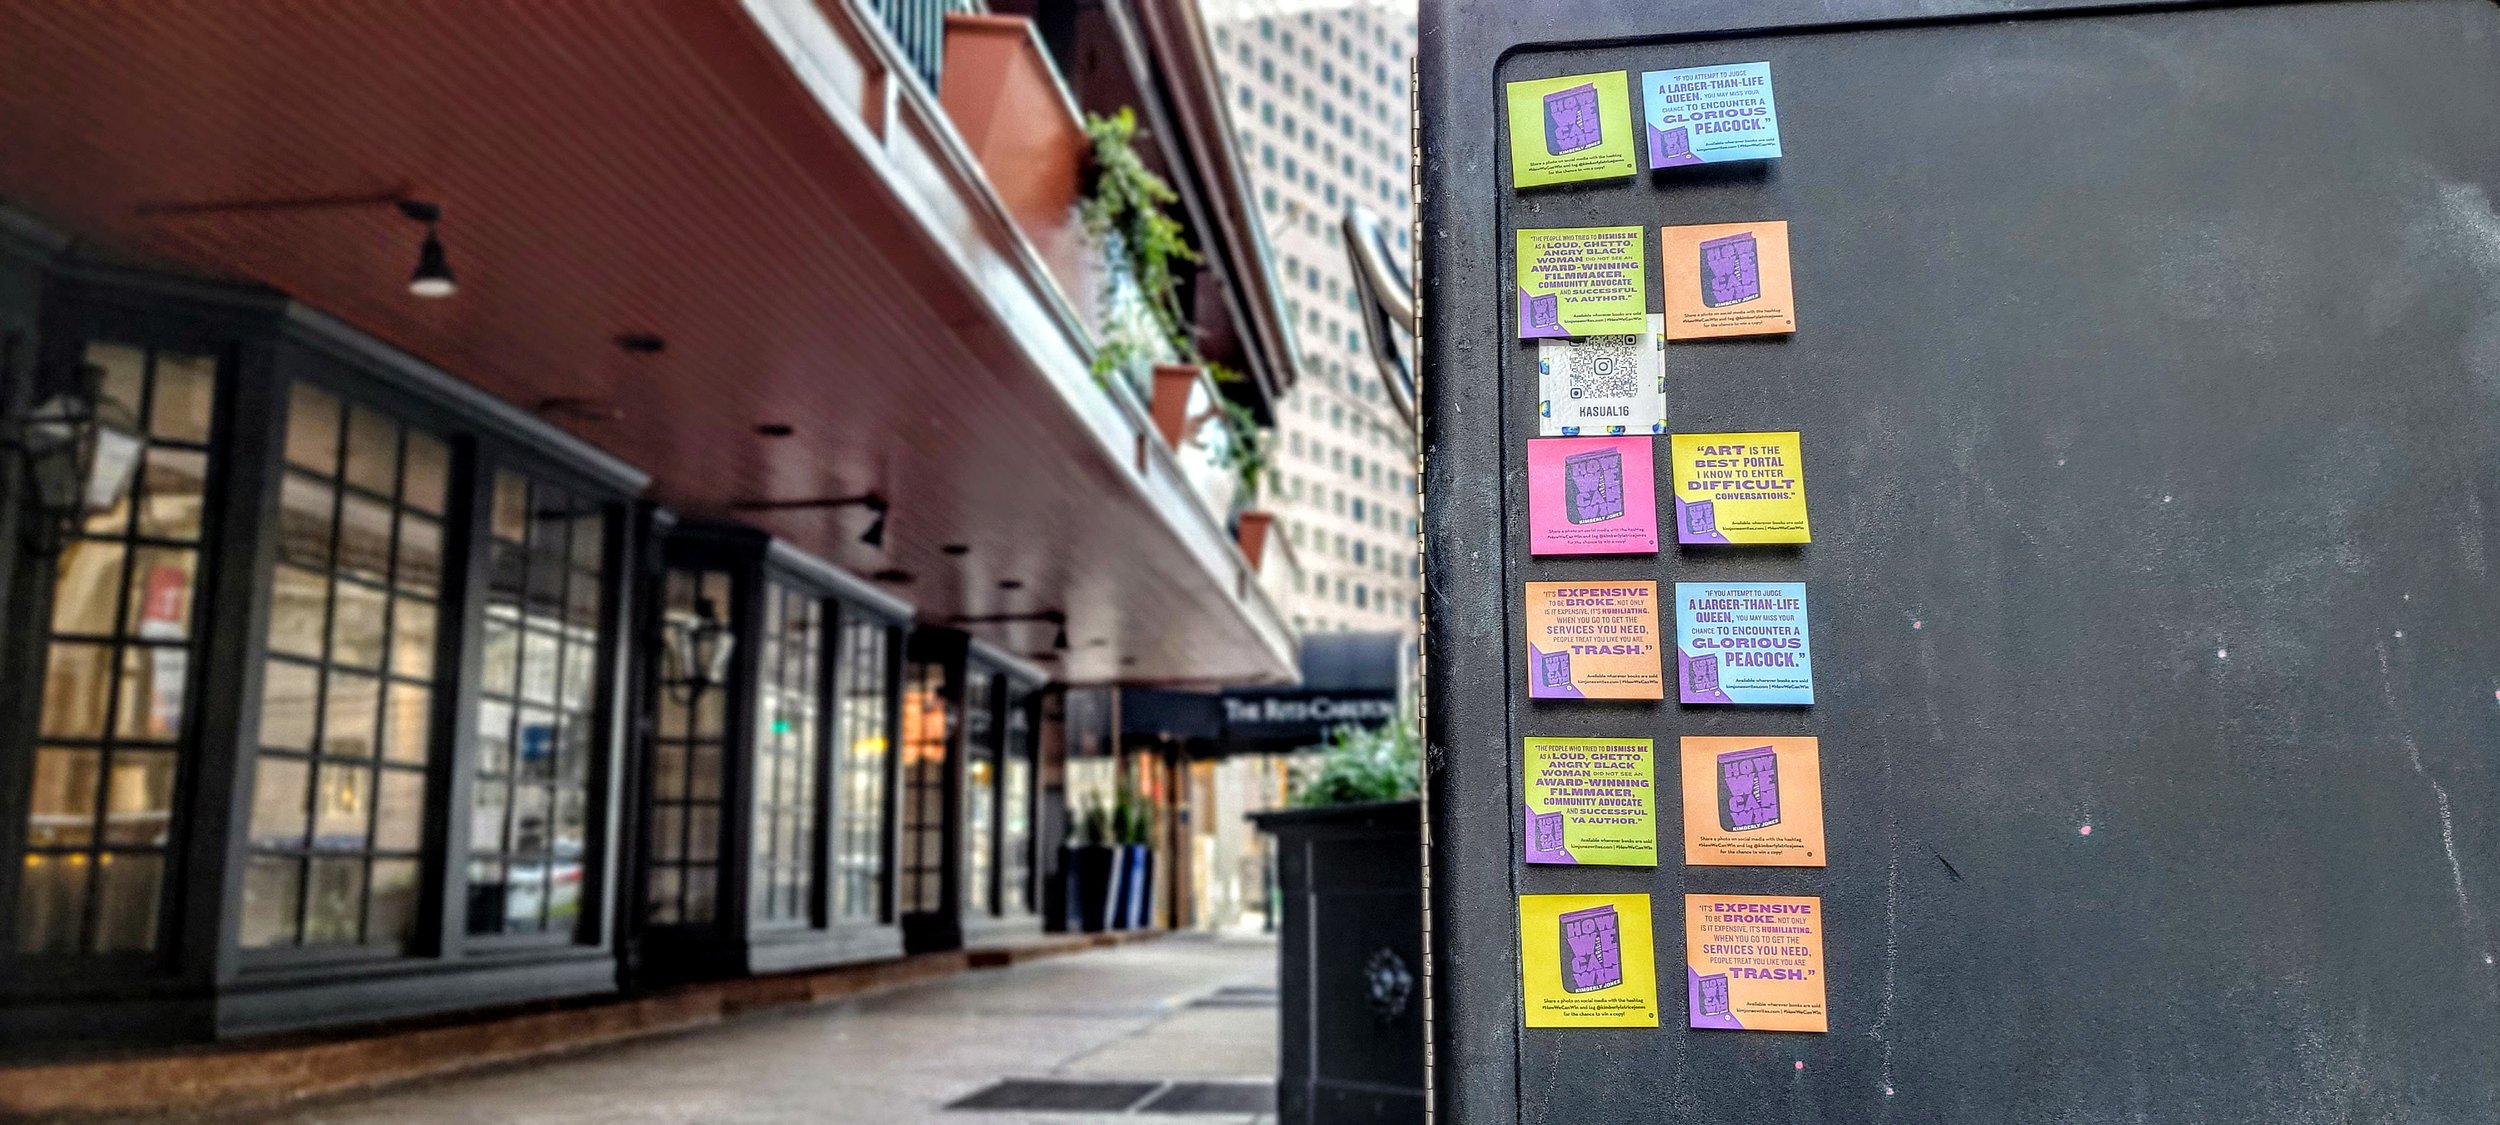 THE RITZ-CARLTON
HOW
WE
CAN
WIN
Share a photo on social media with the hashtag
#HowWeCanWin and tag @kimberlylatricejones
for the chance to win a copy!
"IF YOU ATTEMPT TO JUDGE
A LARGER-THAN-LIFE
QUEEN, YOU MAY MISS YOUR
CHANCE TO ENCOUNTER A
GLORIOUS
PEACOCK."
Available wherever books are sold
kimjoneswrites.com | #HowWeCanWin
"THE PEOPLE WHO TRIED TO DISMISS ME
AS A LOUD, GHETTO,
ANGRY BLACK
WOMAN DID NOT SEE AN
AWARD-WINNING
FILMMAKER,
COMMUNITY ADVOCATE
AND SUCCESSFUL
YA AUTHOR."
Available wherever books are sold
kimjoneswrites.com | #HowWeCanWin
HOW
WE
CAN
WIN
KIMBERLY JONES
Share a photo on social media with the hashtag
#HowWeCanWin and tag @kimberlylatricejones
for the chance to win a copy!
KASUAL16
HOW
WE
CAN
WIN
KIMBERLY JONES
Share a photo on social media with the hashtag
#HowWeCanWin and tag @kimberlylatricejones
for the chance to win a copy!
"ART IS THE
BEST PORTAL
I KNOW TO ENTER
DIFFICULT
CONVERSATIONS."
Available wherever books are sold
kimjoneswrites.com | #HowWeCanWin
"IT'S EXPENSIVE
TO BE BROKE. NOT ONLY
IS IT EXPENSIVE, IT'S HUMILIATING.
WHEN YOU GO TO GET THE
SERVICES YOU NEED,
PEOPLE TREAT YOU LIKE YOU ARE
TRASH."
Available wherever books are sold
kimjoneswrites.com | #HowWeCanWin
"IF YOU ATTEMPT TO JUDGE
A LARGER-THAN-LIFE
QUEEN, YOU MAY MISS YOUR
CHANCE TO ENCOUNTER A
GLORIOUS
PEACOCK."
Available wherever books are sold
kimjoneswrites.com | #HowWeCanWin
"THE PEOPLE WHO TRIED TO DISMISS ME
AS A LOUD, GHETTO,
ANGRY BLACK
WOMAN DID NOT SEE AN
AWARD-WINNING
FILMMAKER,
COMMUNITY ADVOCATE
AND SUCCESSFUL
YA AUTHOR."
Available wherever books are sold
kimjoneswrites.com | #HowWeCanWin
HOW
WE
CAN
WIN
KIMBERLY JONES
Share a photo on social media with the hashtag
#HowWeCanWin and tag @kimberlylatricejones
for the chance to win a copy!
HOW
WE
CAN
WIN
KIMBERLY JONES
Share a photo on social media with the hashtag
#HowWeCanWin and tag @kimberlylatricejones
for the chance to win a copy!
"IT'S EXPENSIVE
TO BE BROKE. NOT ONLY
IS IT EXPENSIVE, IT'S HUMILIATING.
WHEN YOU GO TO GET THE
SERVICES YOU NEED,
PEOPLE TREAT YOU LIKE YOU ARE
TRASH."
Available wherever books are sold
kimjoneswrites.com | #HowWeCanWin